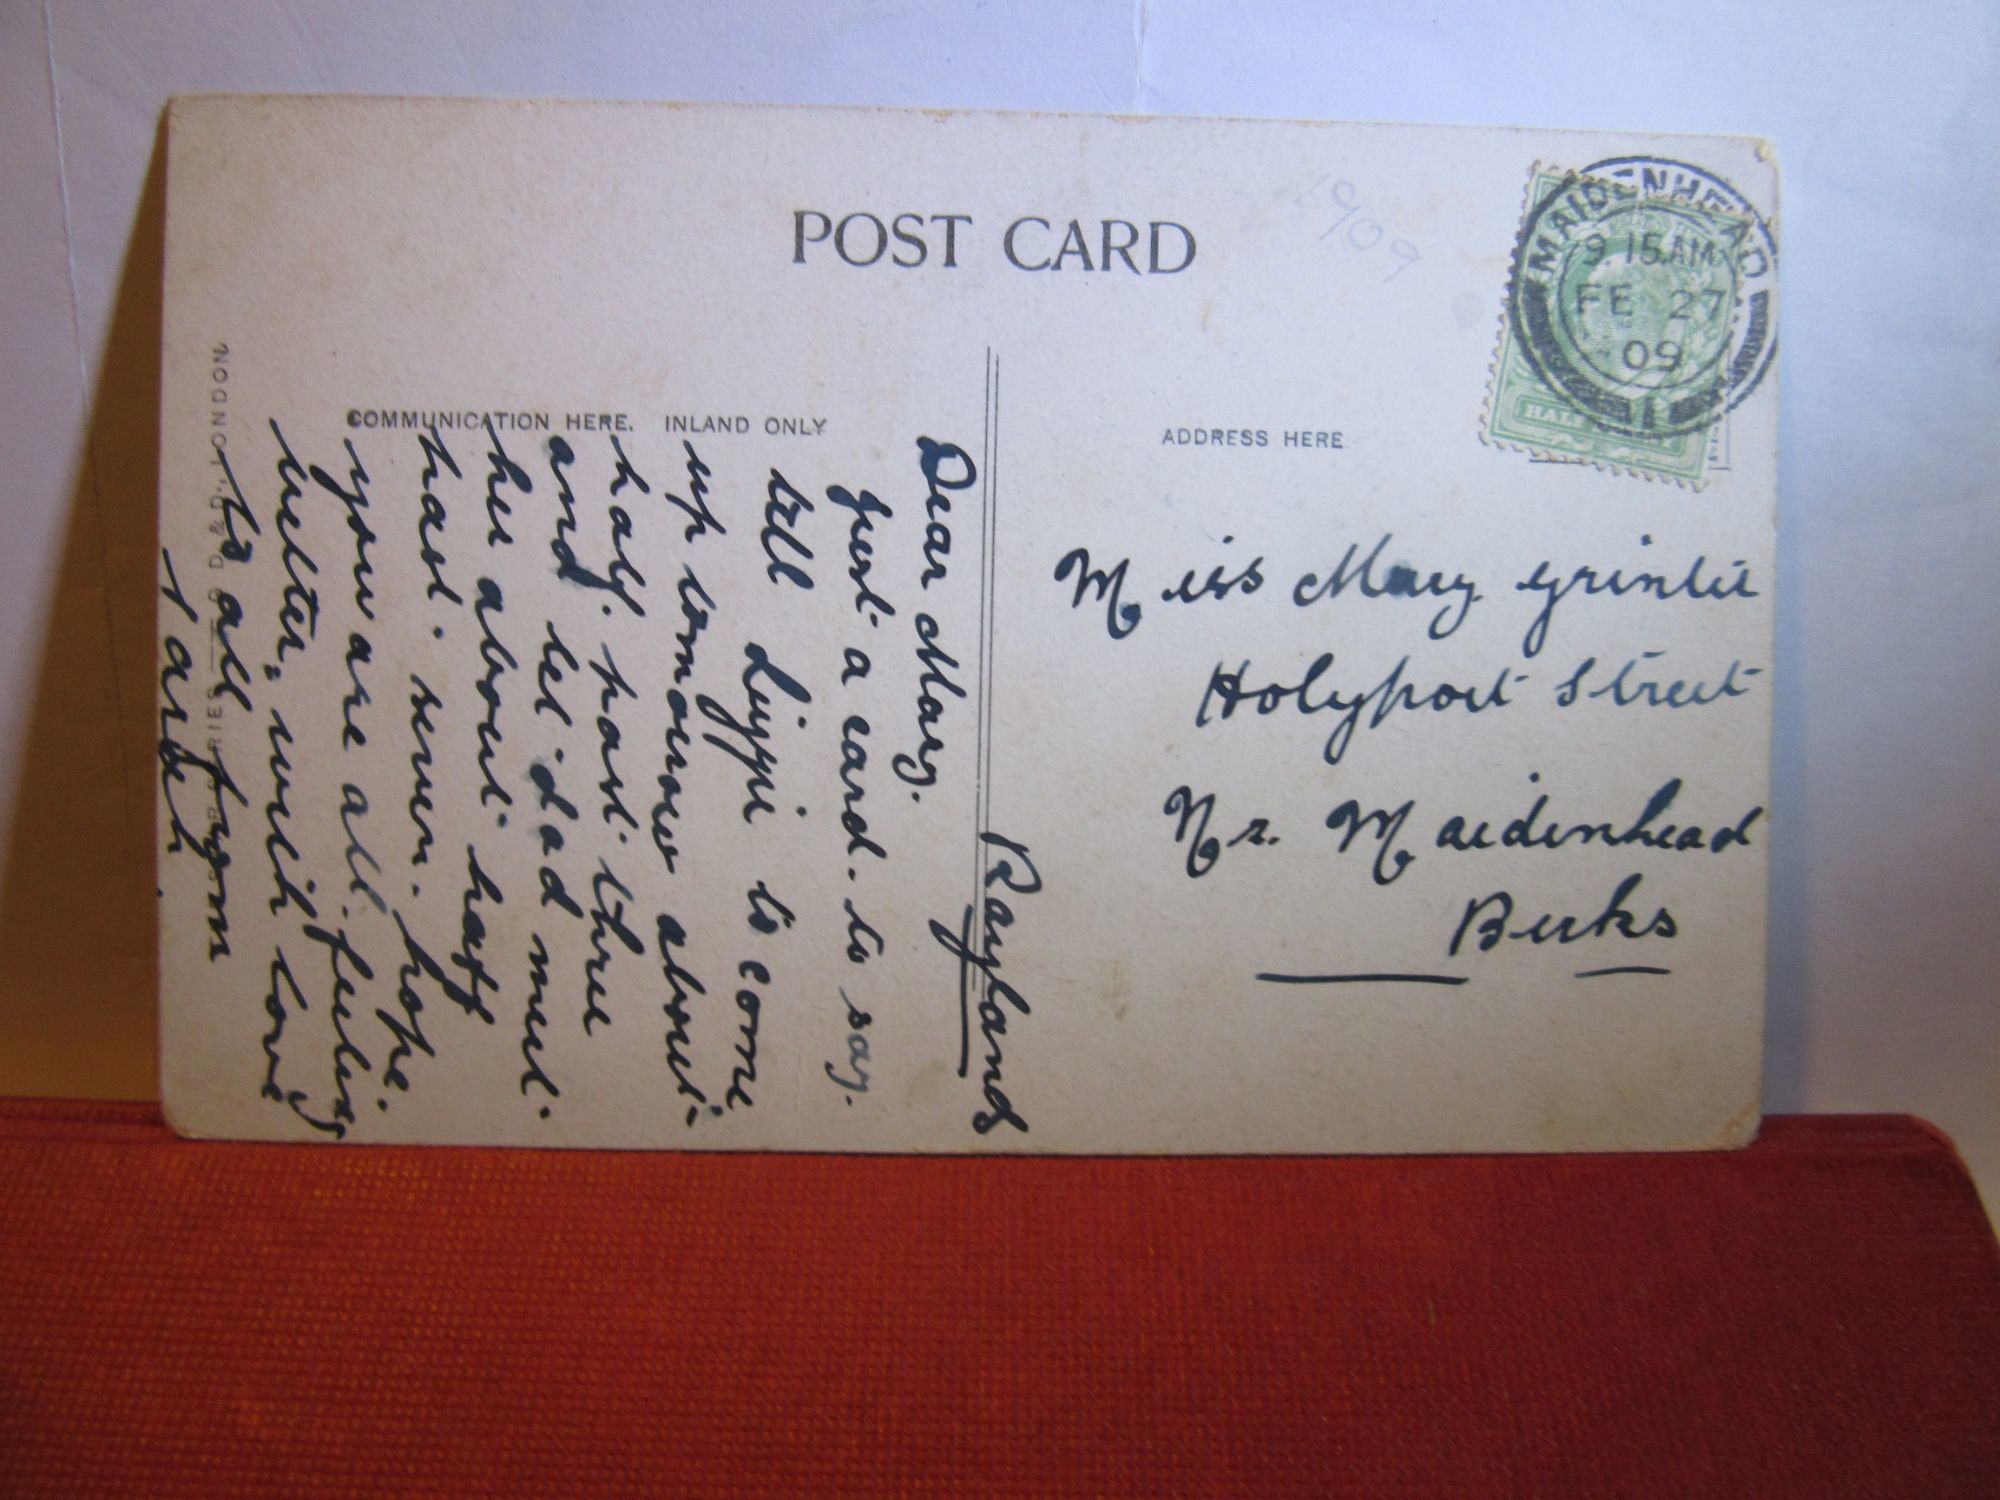 POST CARD
1909
MAIDENHEAD
9 15 AM
FE 27
09
11
HALF
COMMUNICATION HERE. INLAND ONLY
ADDRESS HERE
Miss Mary Grinter
Holyport Street
Nr. Maidenhead
Berks
Raylands
Dear Mary.
Just a card. to say.
tell to come
up tomorow about
half. past three
and let dad meet.
her about haff
past. seven. hope.
you are all. feeling
better, with love
to all from
D & D., LONDON.